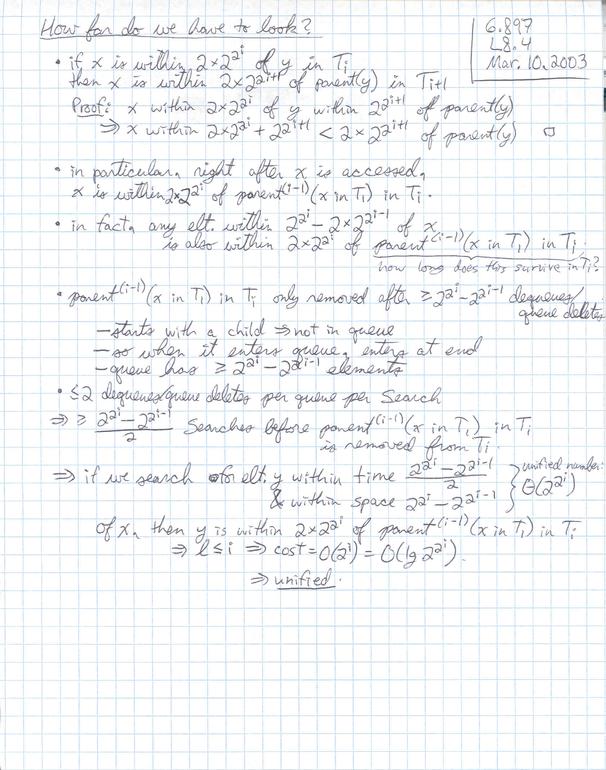 How far do we have to look?
6.897
L8.4
Mar. 10, 2003
• if x is within 2×2^{2^i} of y in T_i
then x is within 2×2^{2^{i+1}} of parent(y) in T_{i+1}
Proof: x within 2×2^{2^i} of y within 2^{2^{i+1}} of parent(y)
⇒ x within 2×2^{2^i} + 2^{2^{i+1}} < 2×2^{2^{i+1}} of parent(y) □
• in particular, right after x is accessed,
x is within 2×2^{2^i} of parent^{(i-1)}(x in T_1) in T_i.
• in fact, any elt. within 2^{2^i} - 2×2^{2^{i-1}} of x
is also within 2×2^{2^i} of parent^{(i-1)}(x in T_1) in T_i.
how long does this survive in T_i?
• parent^{(i-1)}(x in T_1) in T_i only removed after ≥ 2^{2^i} - 2^{2^{i-1}} dequeues/
queue deletes
– starts with a child ⇒ not in queue
– so when it enters queue, enters at end
– queue has ≥ 2^{2^i} - 2^{2^{i-1}} elements
• ≤2 dequeues/queue deletes per queue per Search
⇒ ≥ (2^{2^i} - 2^{2^{i-1}})/2 Searches before parent^{(i-1)}(x in T_1) in T_i
is removed from T_i
⇒ if we search for elt. y within time (2^{2^i} - 2^{2^{i-1}})/2
& within space 2^{2^i} - 2^{2^{i-1}} } unified number: Θ(2^{2^i})
of x, then y is within 2×2^{2^i} of parent^{(i-1)}(x in T_1) in T_i
⇒ l ≤ i ⇒ cost = O(2^i) = O(lg 2^{2^i}).
⇒ unified.